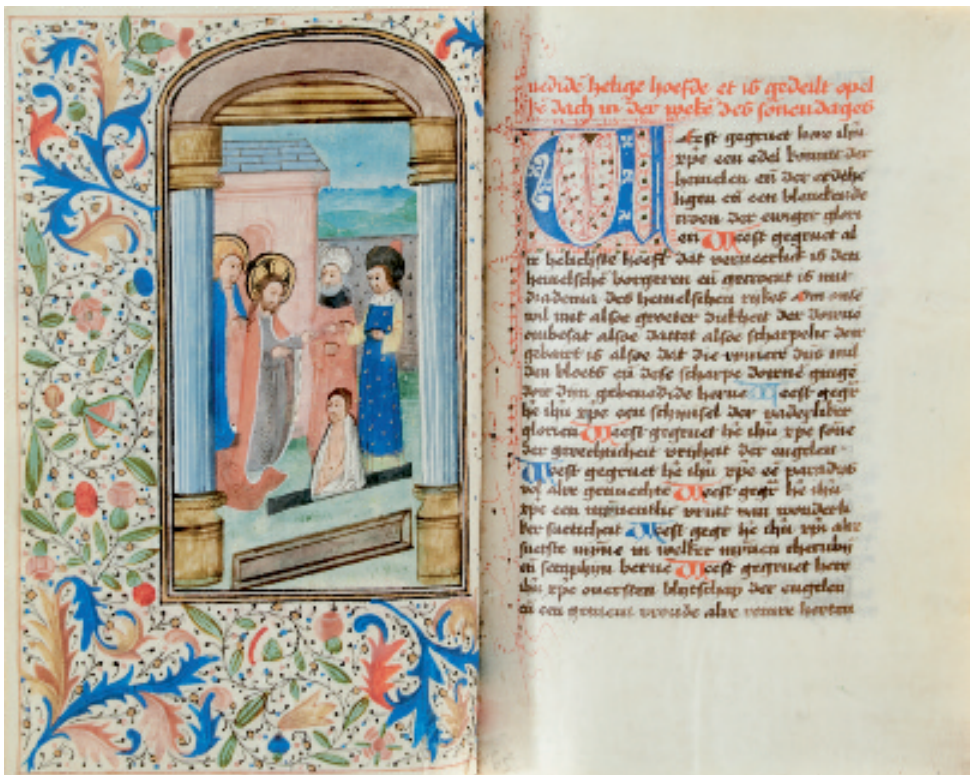 nedide helige hoefde et is gedeilt opel
ke dach in der weke des sonendages
Weest gegruet here ihu
xpe een edel bonite der
hemelen en der erdehe
ligen en een blenkende
troen der ewiger glori
en Weest gegruet al
re helichste hoeft dat vereerlict is den
hemelsche borgeren en gecroent is mit
diadema des hemelschen rykes om onse
wil mit alsoe groeter dicheit der dorne
ombesat alsoe dattet alsoe scharpelic dor
gebaert is alsoe dat die dins
den bloets en dese scharpe dorne ginge
dor dyn gebenedide herne Weest gegr
he ihu xpe een schynsel der vaderliker
glorien Weest gegruet he ihu xpe sone
der gerechticheit vryheit der engelen
Weest gegruet he ihu xpe ee paradys
vol alre genuechte Weest gegr he ihu
xpe een vrint van wonderli
ker sueticheit Weest gegr he ihu xpe alre
suetste mine in welker minen cherubin
en seraphim berne Weest gegruet here
ihu xpe ouersten blijtschap der engelen
en een gemeine vroude alre reinre herten